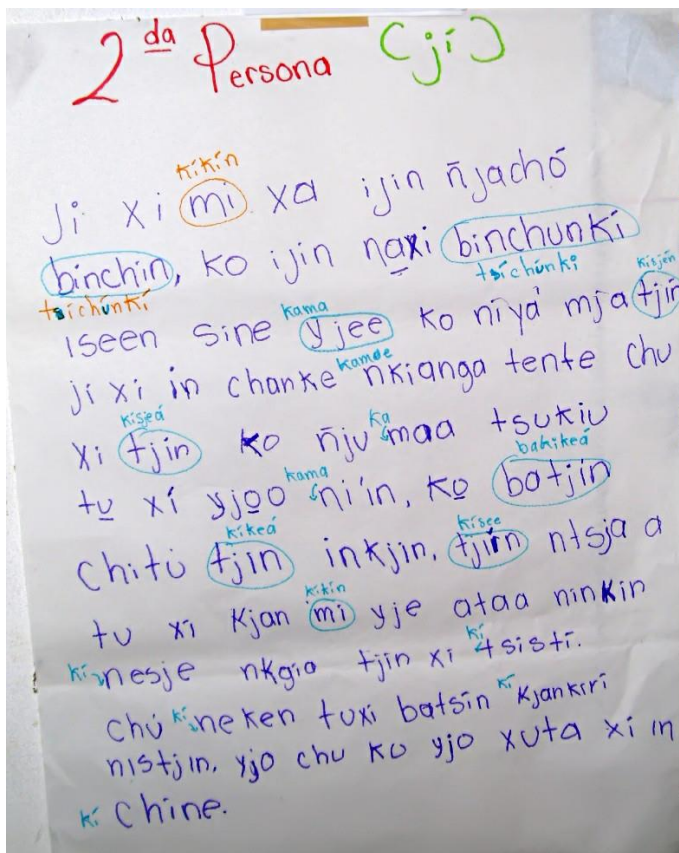 2 da Persona (jí)
kíkín
Ji xi mi xa ijin ñjachó
binchin, ko ijin naxi binchunkí
tsíchúnkí tsíchúnki kisjén
kama
iseen sine yjee ko níyá mja tjín
kamde
ji xi in chanke nkianga tente chu
kisjeá ka
xi tjín ko ñju maa tsukiu
kama bakikeá
tu xí yjoo ni'in, ko batjín
kíkeá kísee
chitú tjin inkjin, tjin ntsja a
kikín
tu xi kjan mi yje ataa ninkin
kí kí
nesje nkgio tjin xi tsistí.
kí kí
chú neken tuxi batsín kjankirí
nistjin, yjo chu ko yjo xuta xí in
kí chine.